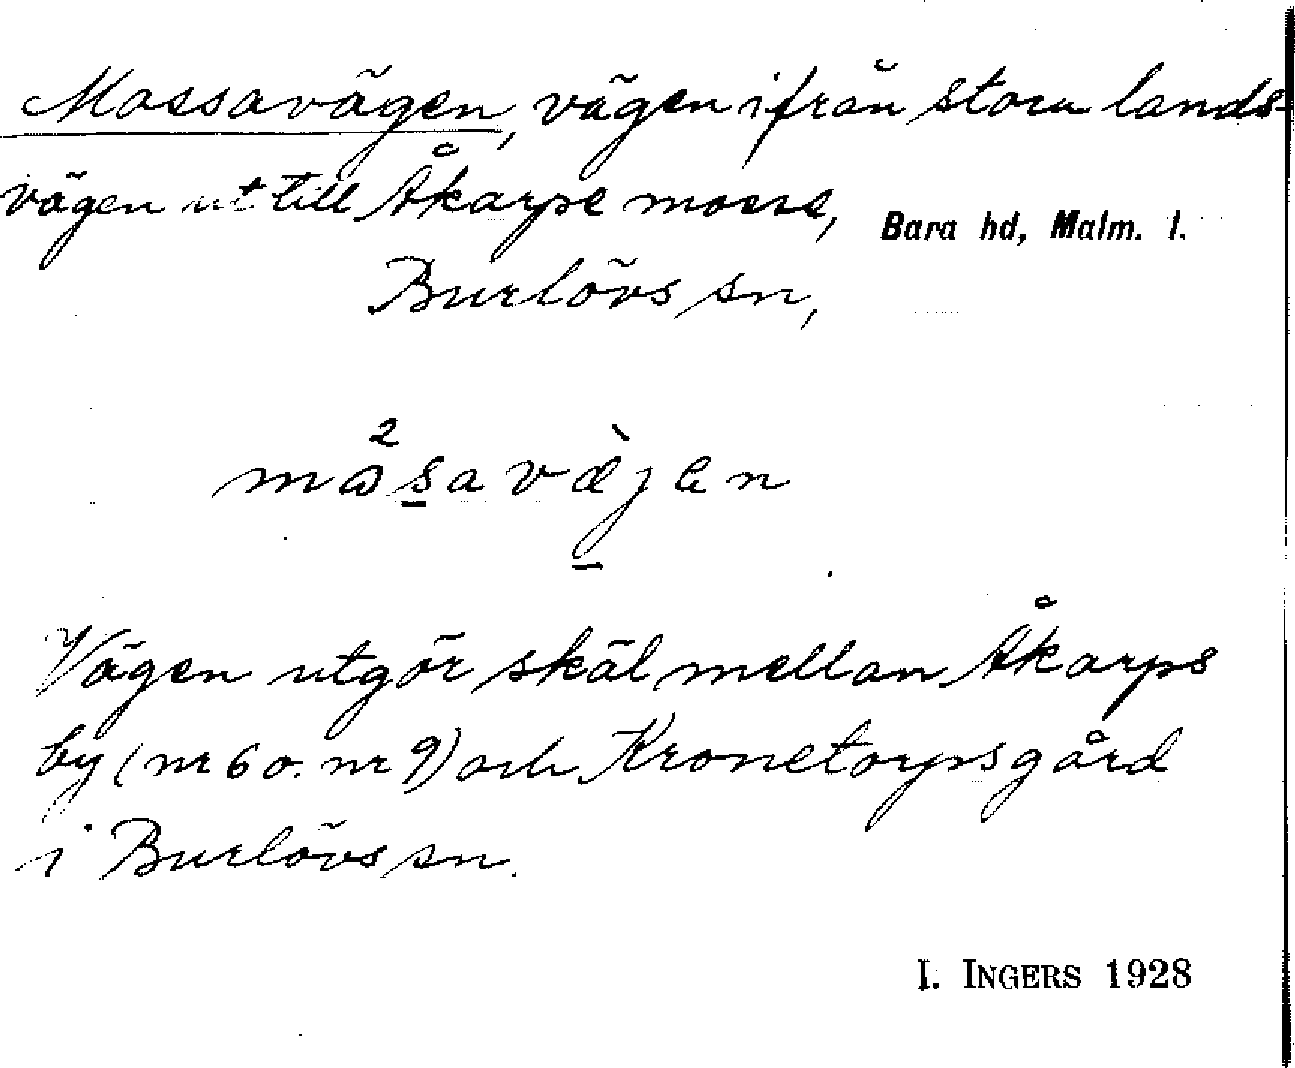 Mossavägen, vägen ifrån stora lands-
vägen ut till Åkarps mosse, Bara hd, Malm. l.
Burlövs sn,
måsavæ̀jen
Vägen utgör skäl mellan Åkarps
by (nr 6 o. nr 9) och Kronetorpsgård
i Burlövs sn.
I. INGERS 1928